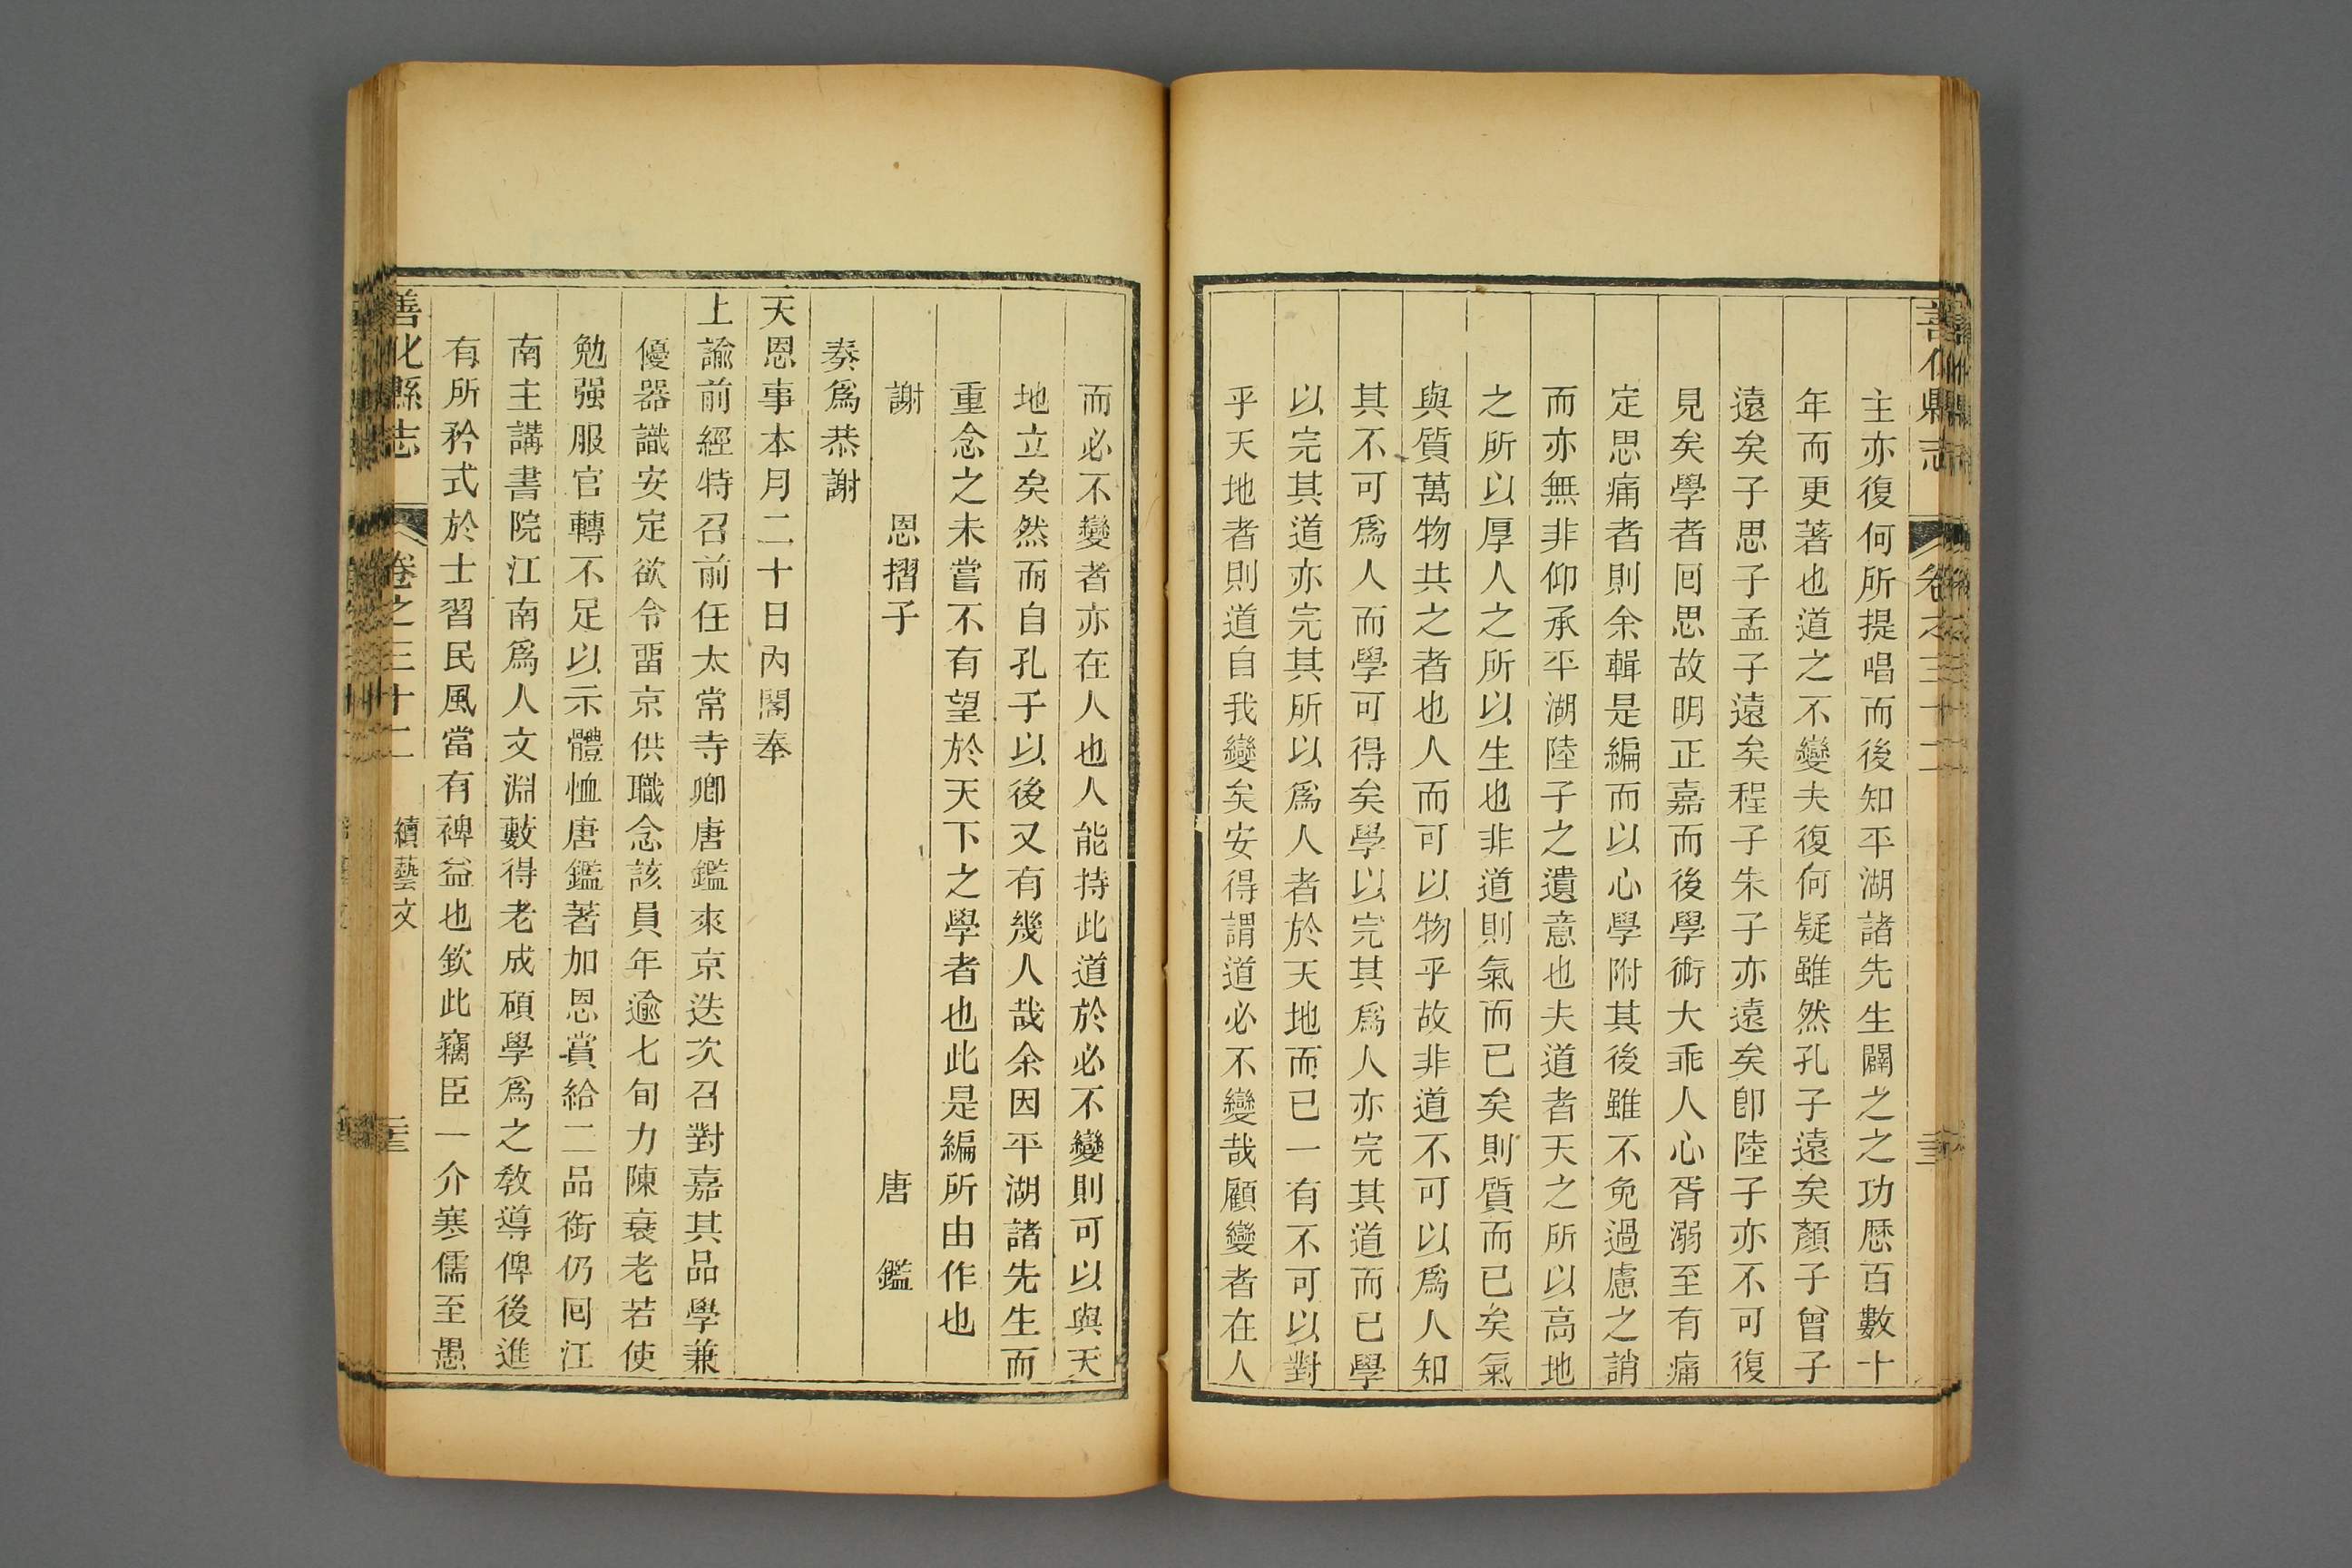 善化縣志 卷之三十二
主亦復何所提唱而後知平湖諸先生闢之之功歷百數十
年而更著也道之不變夫復何疑雖然孔子遠矣顏子曾子
遠矣子思子孟子遠矣程子朱子亦遠矣卽陸子亦不可復
見矣學者囘思故明正嘉而後學術大乖人心胥溺至有痛
定思痛者則余輯是編而以心學附其後雖不免過慮之誚
而亦無非仰承平湖陸子之遺意也夫道者天之所以高地
之所以厚人之所以生也非道則氣而已矣則質而已矣氣
與質萬物共之者也人而可以物乎故非道不可以爲人知
其不可爲人而學可得矣學以完其爲人亦完其道而已學
以完其道亦完其所以爲人者於天地而已一有不可以對
乎天地者則道自我變矣安得謂道必不變哉顧變者在人
而必不變者亦在人也人能持此道於必不變則可以與天
地立矣然而自孔子以後又有幾人哉余因平湖諸先生而
重念之未嘗不有望於天下之學者也此是編所由作也
謝 恩摺子 唐鑑
奏爲恭謝
天恩事本月二十日內閣奉
上諭前經特召前任太常寺卿唐鑑來京迭次召對嘉其品學兼
優器識安定欲令畱京供職念該員年逾七旬力陳衰老若使
勉强服官轉不足以示體恤唐鑑著加恩賞給二品銜仍囘江
南主講書院江南爲人文淵藪得老成碩學爲之敎導俾後進
有所矜式於士習民風當有裨益也欽此竊臣一介寒儒至愚
善化縣志 卷之三十二 續藝文